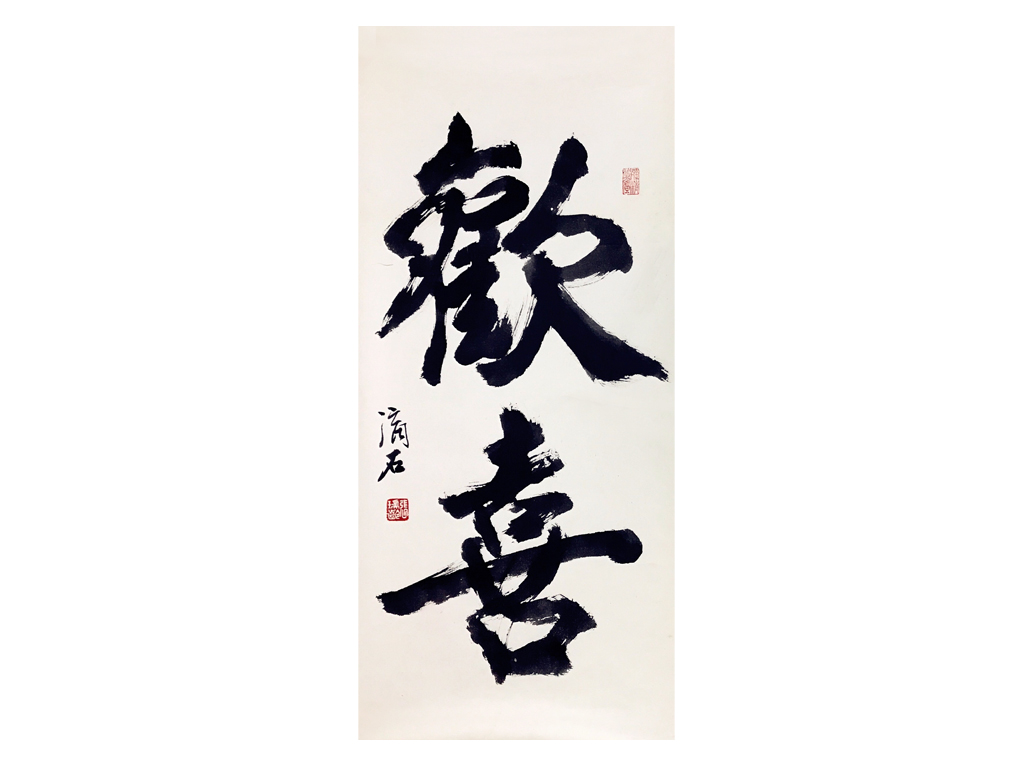 歡喜
滴石